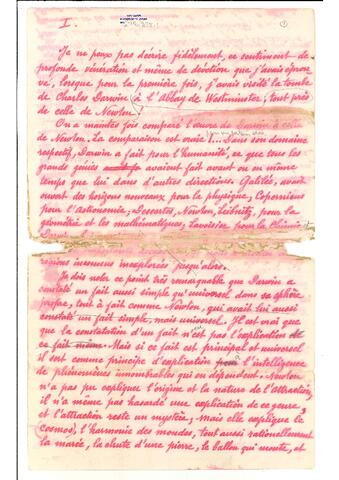 I.
Je ne peux pas décrire fidèlement, ce sentiment de
profonde vénération et même de dévotion que j'avais éprou
vé, lorsque pour la première fois, j'avais visité la tombe
de Charles Darwin à l'Abbaye de Westminster, tout près
de celle de Newton.
On a maintes fois comparé l'œuvre de Darwin à celle
de Newton. La comparaison est vraie. Dans son domaine
respectif, Darwin a fait pour l'humanité, ce que tous les
grands génies avaient fait avant ou en même
temps que lui dans d'autres directions. Galilée, avait
ouvert des horizons nouveaux pour la physique, Copernious
pour l'Astronomie, Descartes, Newton, Leibnitz, pour la
géométrie et les mathématiques, Lavoisier pour la Chimie et
régions inconnues inexplorées jusqu'alors.
Je dois noter ce point très remarquable que Darwin a
constaté un fait aussi simple qu'universel dans sa sphère
propre, tout à fait comme Newton, qui avait lui aussi
constaté un fait simple, mais universel. Il est vrai que
que la constatation d'un fait n'est pas l'explication de
ce fait même. Mais si ce fait est principal et universel
il est comme principe d'explication l'intelligence
de phénomènes innombrables qui en dépendent. Newton
n'a pas pu expliquer l'origine et la nature de l'attraction,
il n'a même pas hasardé une explication de ce genre,
et l'attraction reste un mystère, mais elle explique le
cosmos, l'harmonie des mondes, tout aussi rationnellement
la marée, la chute d'une pierre, le ballon qui monte, et